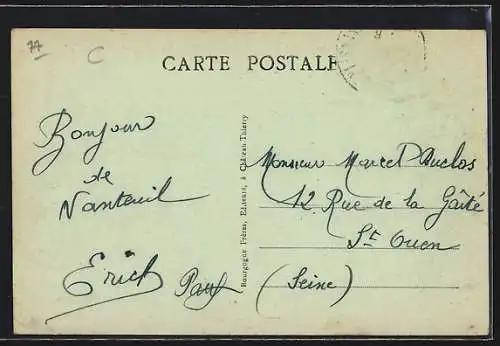 77
C
CARTE POSTALE
Bonjour
de
Nanteuil
Erich
Paul
Bourgogne Frères, Editeurs, à Château-Thierry
Monsieur Marcel Duclos
12 Rue de la Gaîté
St Ouen
(Seine)